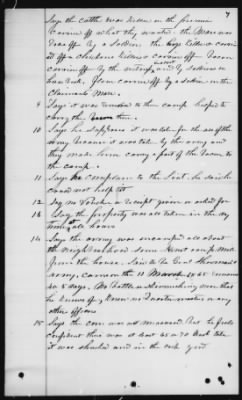 7
Says the cattle was killed on the premises
carried off what they wanted. the Mare was
drove off by a soldier. the hogs killed & carried
it off & chickens killed & carried off. Bacon
carried off by the and by soldiers on
horseback. Flour carried off by a soldier on the
Claimants Mare.
9 Says it was removed to their camp helped to
carry the them.
10 Says he supposed it was taken for the use of the
army because it was taken by the army and
they made him carry a part of the Bacon to
the camp.
11 Says he complained to the Lieut. he said he
could not help it
12 Says no Voucher or receipt given or asked for
14 Says the property was all taken in the day
at all hours
14 Says the army was encamped all about
the neighborhood some nearest camp mile
from the house. Said to be Genl Shermans
army, came on the 11 March 1865 remained
4 or 5 days. No battle or skirmishing near that
he knows of, knew no Quartermaster or any
other officers
15 Says the corn was not measured but he feels
confident there was at least 65 or 70 bush
it was shucked and in the